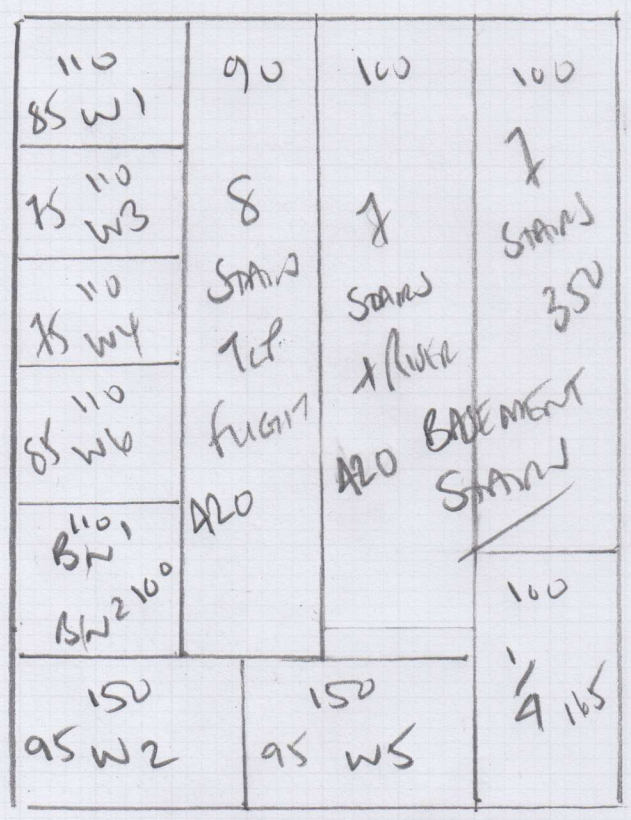 110
85 W1
110
75 W3
110
75 W4
110
85 W6
110
BW1
BW2 100
90
8
STAIRS
TOP
FLIGHT
420
100
7
STAIRS
+ RISER
420
100
7
STAIRS
350
BASEMENT
STAIRS
100
1/4 165
150
95 W2
150
95 W5